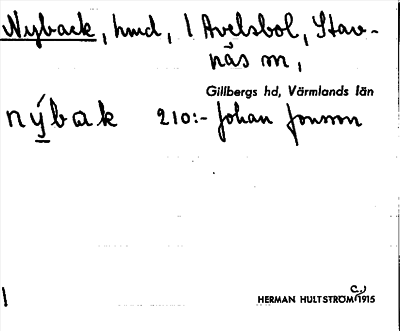 Nyback, hmd, 1 Avelsbol, Stav-
näs sn,
Gillbergs hd, Värmlands län
nýbak 210:- Johan Jonsson
HERMAN HULTSTRÖM 1915